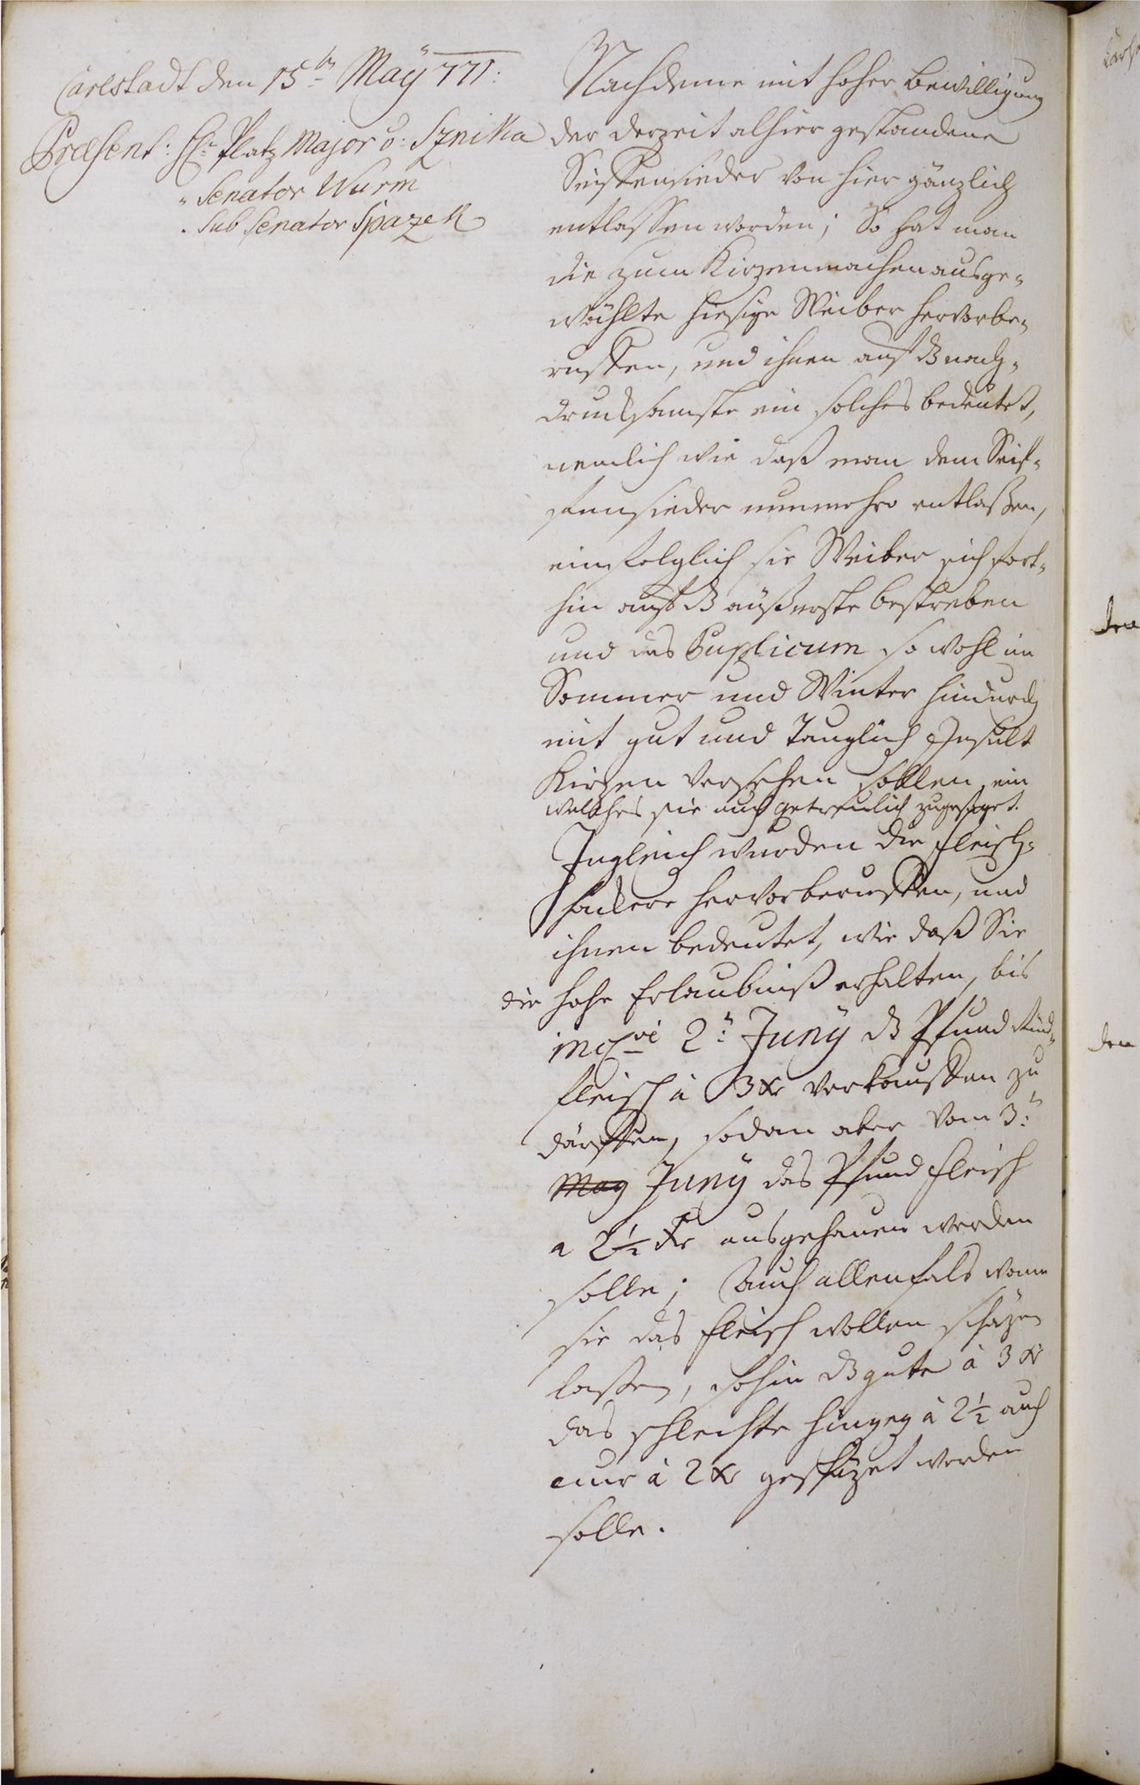 Carlstadt den 15ten Maÿ 771:
Præsent: H: Platz Major v: Sznika
" Senator Wurm
" Sub Senator Spazek
Nachdeme mit hoher Bewilligung
der derzeit alhier gestandene
Seiffensieder von hier gänzlich
entlassen worden; So hat man
die zum Kirzenmachen ausge-
wählte hiesige Weiber hervorbe-
ruffen, und ihnen auf das nach-
drucksamste ein solches bedeutet,
nemlich wie daß man dem Seif-
fensieder nunmehro entlaßen,
einfolglich sie Weiber sich fort-
hin aufs äußerste bestreben
und das Puplicum so wohl im
Sommer und Winter hindurch
mit gut und Tauglich Insult
Kirzen versehen sollen, ein
welches sie auch getreulich zugesaget.
Zugleich wurden die Fleisch-
hackere hervorberuffen, und
ihnen bedeutet, wie daß Sie
die hohe Erlaubniß erhalten, bis
incl.ve 2n: Junÿ das Pfund Rind-
fleisch à 3 xr verkauffen zu
därffen, sodan aber vom 3n:
May Junÿ das Pfund Fleisch
a 2½ xr ausgehauen werden
solle; Auch allenfals wann
sie das Fleisch wollen schäzen
lassen, sohin das gute à 3 xr
das schlechte hingeg à 2½ auch
nur à 2 xr geschäzet werden
solle.
den
den